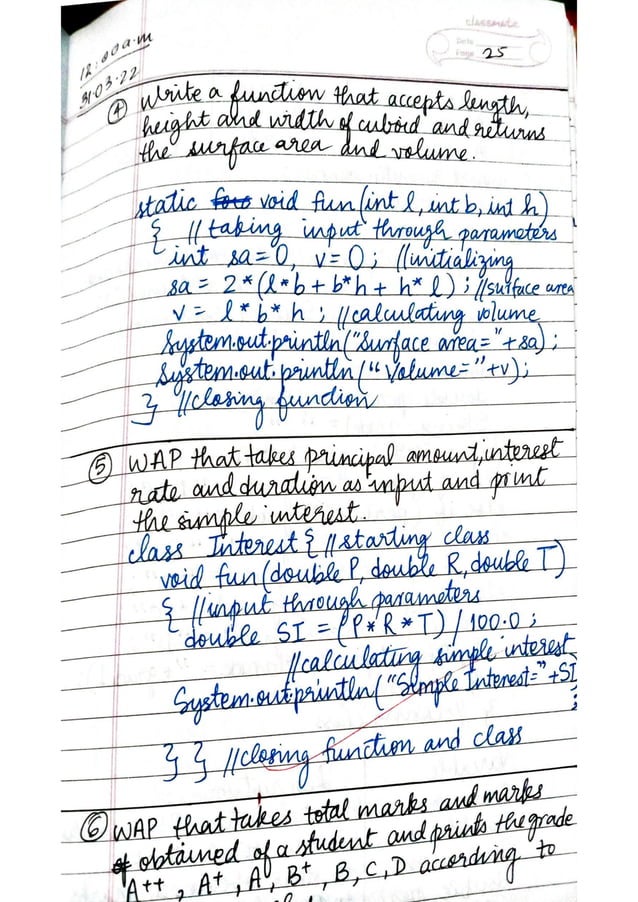 classmate
Date
Page 25
12:00a.m
31.03.22
④ Write a function that accepts length,
height and width of cuboid and returns
the surface area and volume.
static void fun(int l, int b, int h)
{ // taking input through parameters
int sa=0, v=0; //initializing
sa = 2*(l*b+b*h+h*l); //surface area
v = l*b*h; //calculating volume
System.out.println("Surface area="+sa);
System.out.println("Volume="+v);
} //closing function
⑤ WAP that takes principal amount, interest
rate and duration as input and print
the simple interest.
class Interest { //starting class
void fun(double P, double R, double T)
{ //input through parameters
double SI = (P*R*T)/100.0;
//calculating simple interest
System.out.println("Simple Interest="+SI
;
} } //closing function and class
⑥ WAP that takes total marks and marks
obtained of a student and prints the grade
A++, A+, A, B+, B, C, D according to